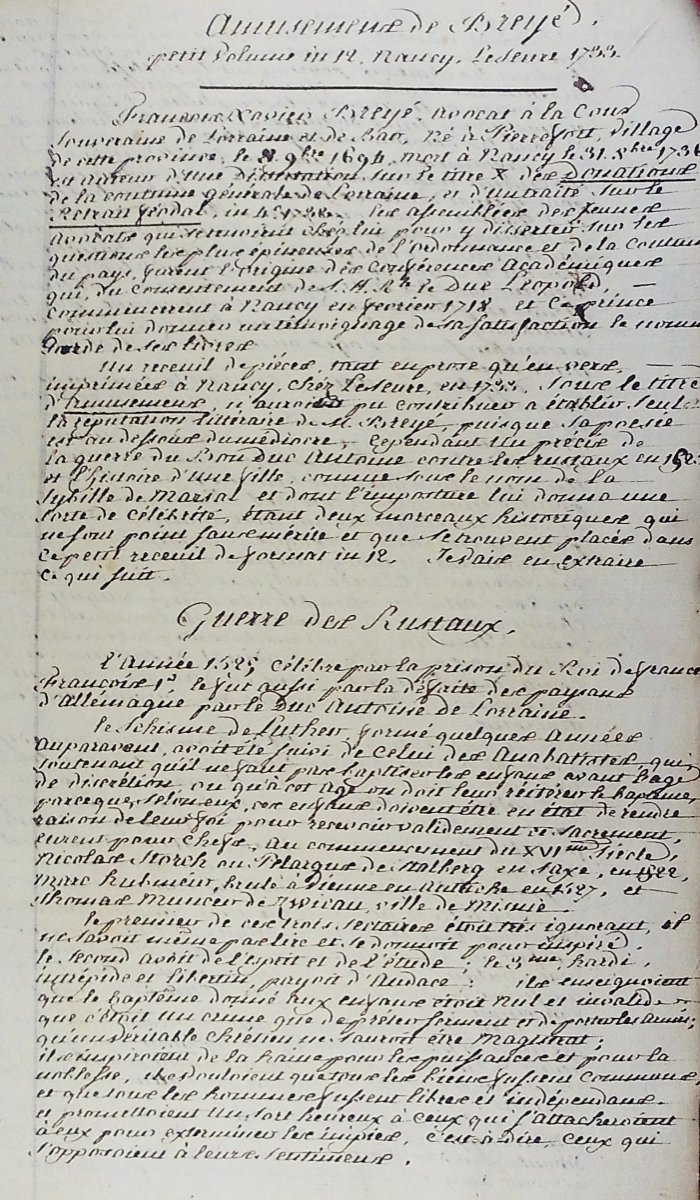 Amusemens de Breyé.
petit volume in 12. Nancy. Leseure 1733.
François Xavier Breyé, avocat à la Cour
Souveraine de Lorraine et de Bar, né à Pierrefort, village
de cette province, le 8. 9bre 1694, mort à Nancy le 31. 8bre 1736
est auteur d'Une Dissertation sur le titre X des Donations
de la coutume générale de Lorraine, et d'un traité sur le
Retrait féodal, in 4º 1733. les assemblées des jeunes
avocats qui se tenoient chez lui pour y disserter sur les
questions les plus épineuses de l'ordonnance et de la Coutume
du pays, furent l'origine des Conférences Académiques
qui, du Consentement de S. A. Rle le Duc Léopold, —
commencerent à Nancy en fevrier 1718 et Ce prince
pour lui donner un témoignage de sa satisfaction le nomma
garde de ses livres
Un receuil de pièces, tant en prose qu'en vers, —
imprimées à Nancy, chez Leseure, en 1733. sous le titre
d'Amusemens, n'auroit pu contribuer a établir seul
la réputation littéraire de M. Breyé, puisque sa poesie
est au dessous du médiocre, Cependant Un précis de
la guerre du Bon Duc Antoine contre les rustaux en 1525
et l'histoire d'Une fille, connue sous le nom de la
Sybille de Marsal et dont l'imposture lui donna une
sorte de célébrité, étant deux morceaux historiques qui
ne sont point sans mérite et que se trouvent placés dans
ce petit receuil de format in 12. Je vais en extraire
ce qui suit.
Guerre des Rustaux.
l'Année 1525 célèbre par la prison du Roi de france
François 1r, le fut aussi par la défaite des paysans
d'allémagne par le Duc Antoine de Lorraine.
le Schisme de Luther, formé quelques Années
auparavant, avoit été suivi de Celui des Anabatistes, qui
soutenant qu'il ne faut pas baptiser les enfans avant l'age
de discrétion, ou qu'à cet age on doit leur réiterer le bapteme,
parceque, selon eux, ces enfans doivent être en état de rendre
raison de leur foi pour recevoir validement ce Sacrement,
eurent pour Chefs, au commencement du XVIme Siècle,
Nicolas Storck ou Pelargus de Stalberg en Saxe, en 1522,
Marc hubmeur, brulé à Vienne en Autriche en 1527, et
thomas muncer de Zwicau, ville de Misnie.
le premier de ces trois sectaires étoit très ignorant, il
ne savoit même pas lire et se donnoit pour inspiré.
le second avoit de l'esprit et de l'étude; le 3me, hardi,
intrépide et libertin, payoit d'Audace: ils enseignoient
que le baptême donné aux enfans étoit nul et invalide
que c'étoit un crime que de prêter serment et de porter les Armes;
qu'un véritable Chrétien ne sauroit être Magistrat;
ils inspiroient de la haine pour les puissances et pour la
noblesse, ils vouloient que tous les biens fussent Communs
et que tous les hommes fussent libres et indépendans.
et promettoient Un sort heureux à ceux qui s'attacheroient
à eux pour exterminer les impies, c'est à dire, ceux qui
s'opposoient à leurs sentimens.